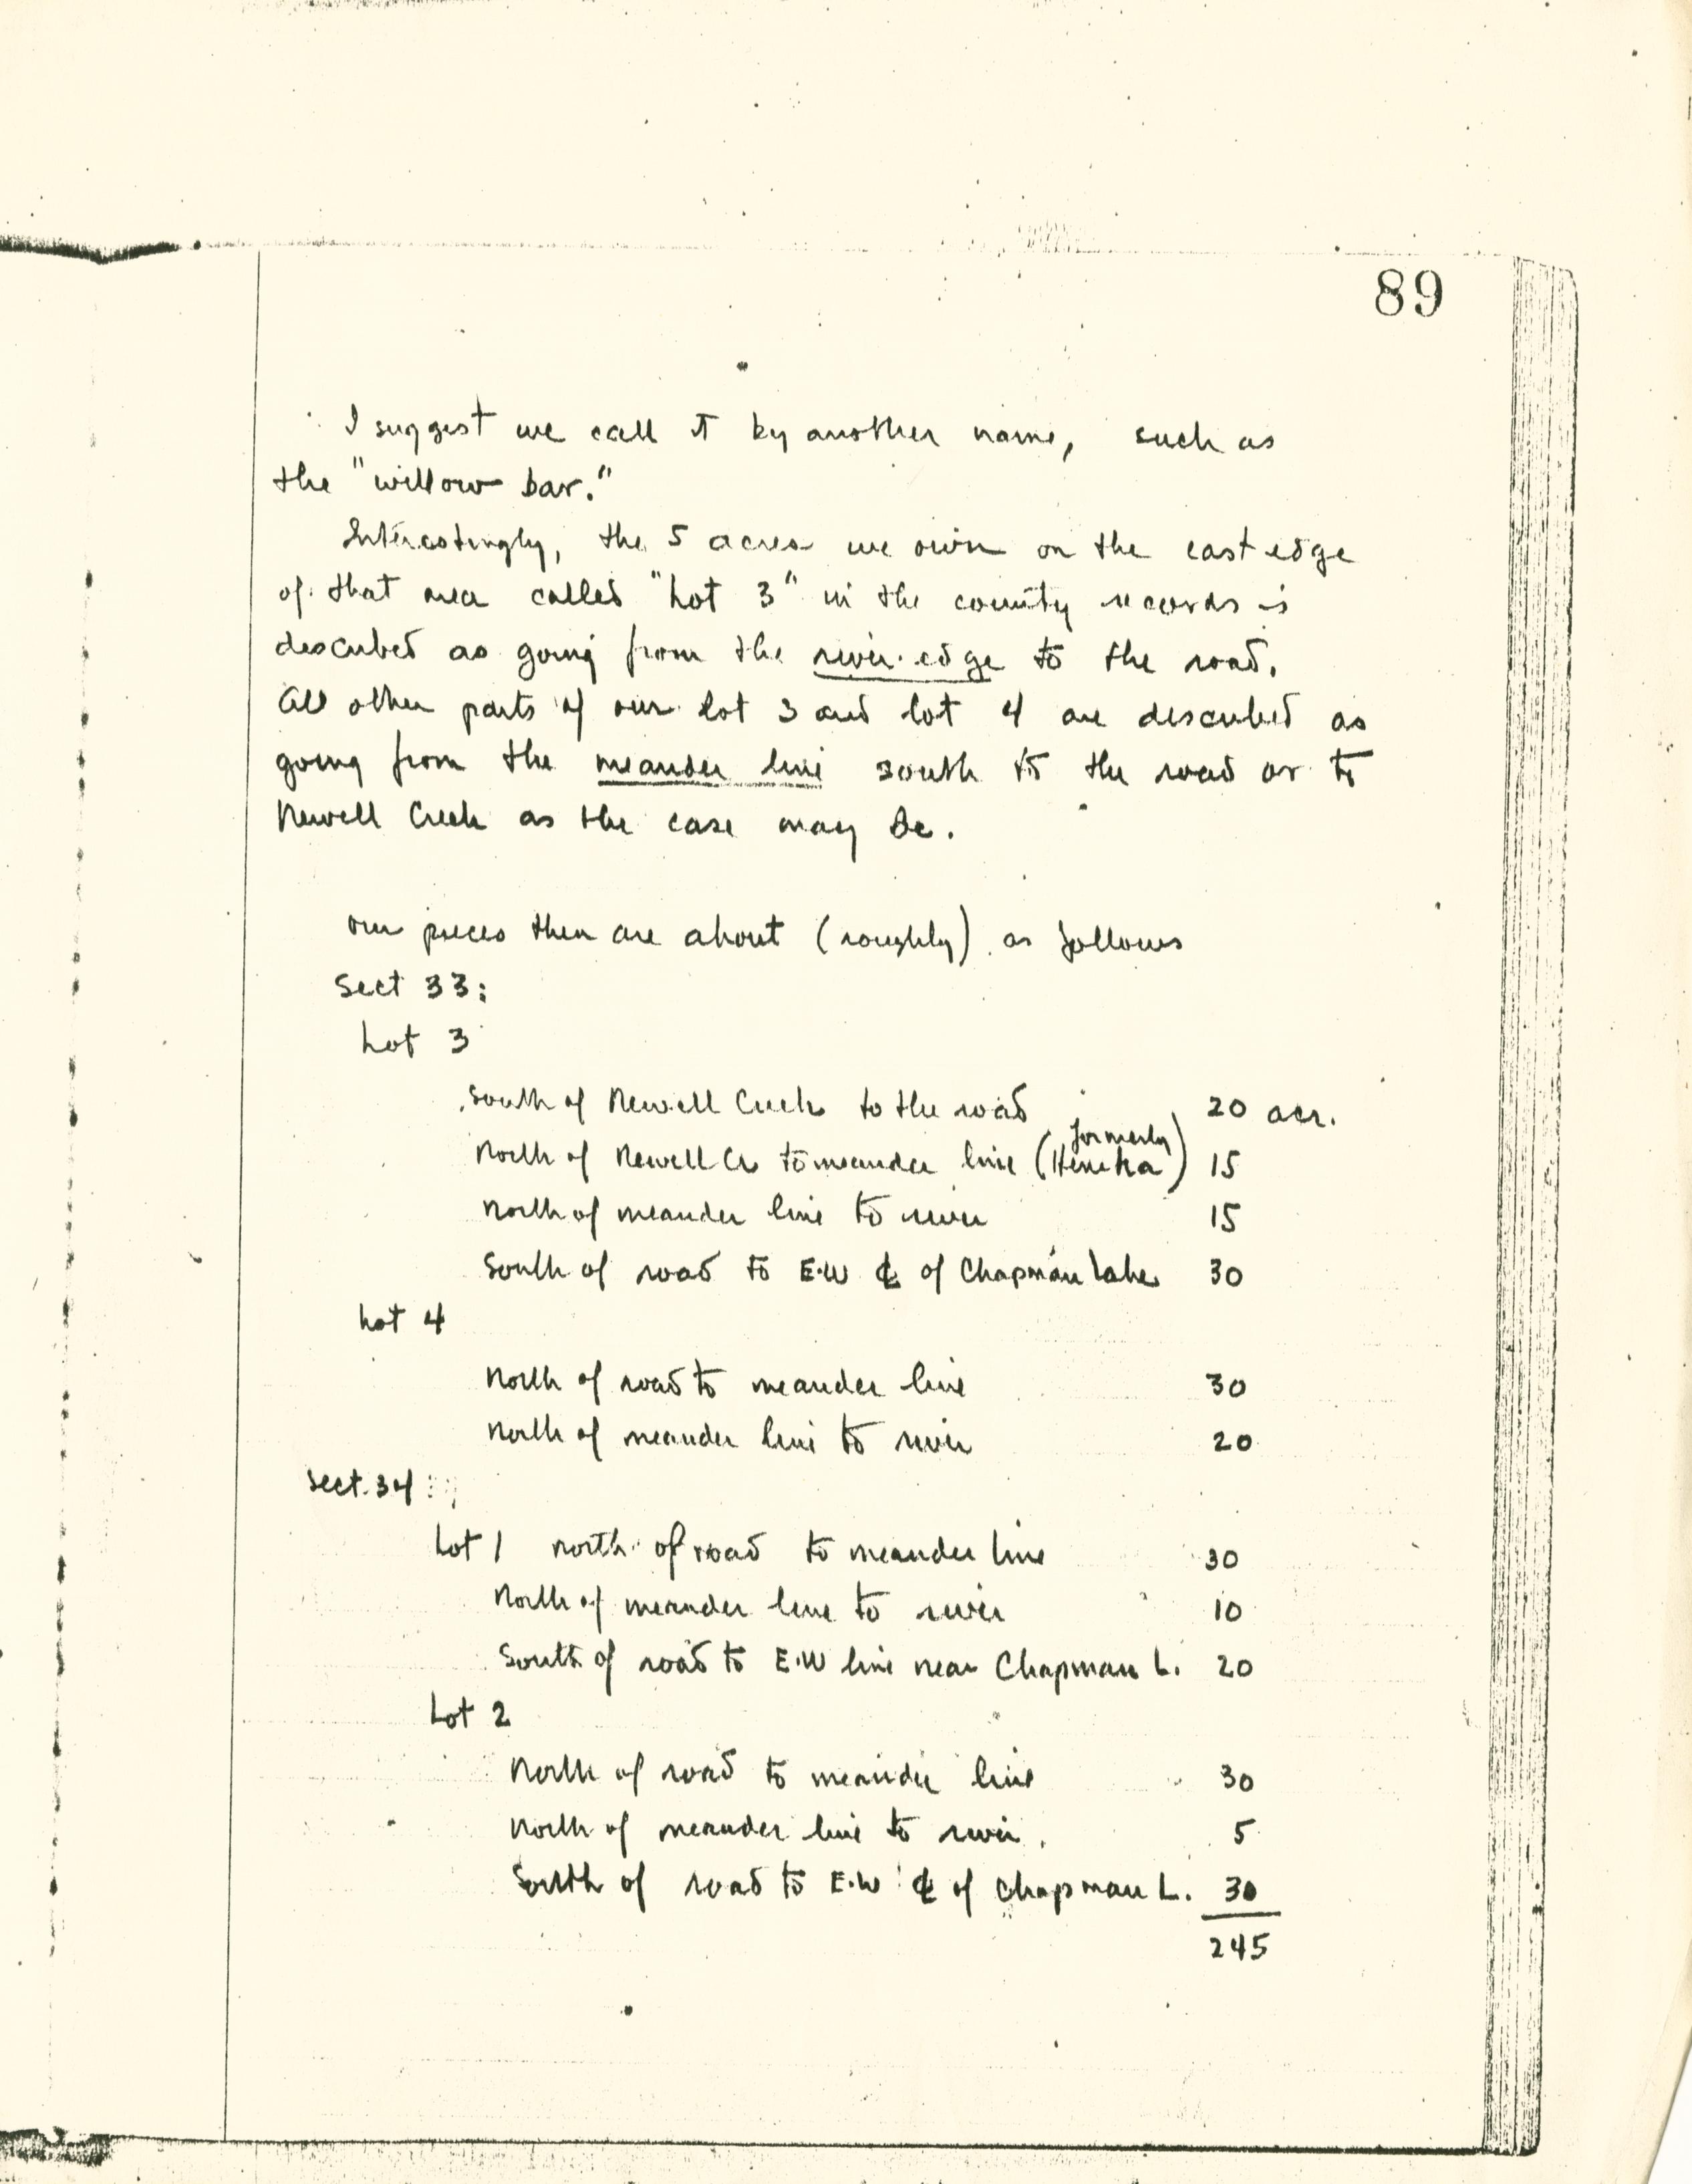 89
I suggest we call it by another name, such as
the "willow bar."
Interestingly, the 5 acres we own on the east edge
of that area called "Lot 3" in the county records is
described as going from the river edge to the road.
All other parts of our lot 3 and lot 4 are described as
going from the meander line south to the road or to
Newell Creek as the case may be.
Our pieces then are about (roughly) as follows
Sect 33:
Lot 3
South of Newell Creek to the road 20 acr.
North of Newell Cr to meander line (formerly ) 15
North of meander line to river 15
South of road to E-W ℄ of Chapman Lake 30
Lot 4
North of road to meander line 30
North of meander line to river 20
Sect. 34:
Lot 1 north of road to meander line 30
North of meander line to river 10
South of road to E-W line near Chapman L. 20
Lot 2
North of road to meander line 30
North of meander line to river. 5
South of road to E-W ℄ of Chapman L. 30
245